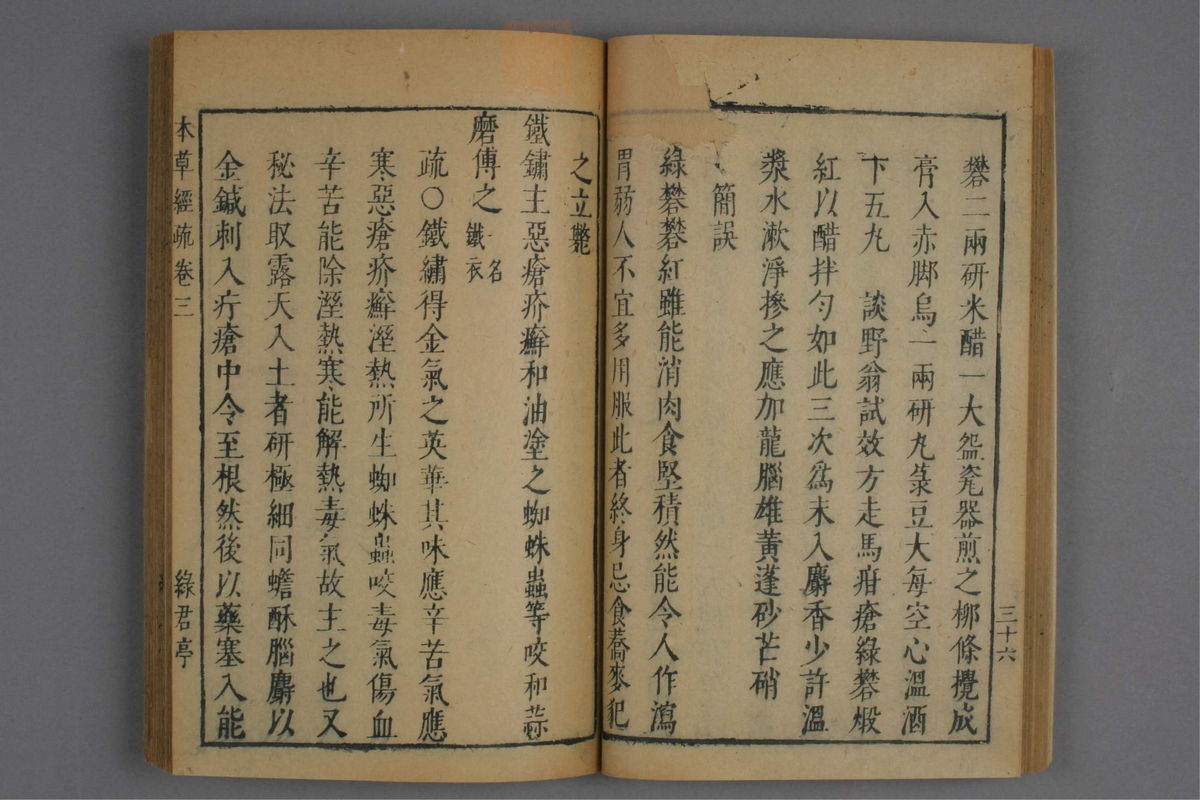 礬二兩研米醋一大盌瓷器煎之柳條攪成
膏入赤脚烏一兩研丸菉豆大每空心溫酒
下五丸　談野翁試效方走馬疳瘡綠礬煅
紅以醋拌勻如此三次爲末入麝香少許溫
漿水漱淨摻之應加龍腦雄黃蓬砂芒硝
簡誤
綠礬礬紅雖能消肉食堅積然能令人作瀉
胃弱人不宜多用服此者終身忌食蕎麥犯
三十六
之立斃
鐵鏽主惡瘡疥癬和油塗之蜘蛛蟲等咬和蒜
磨傅之一名鐵衣
疏〇鐵繡得金氣之英華其味應辛苦氣應
寒惡瘡疥癬溼熱所生蜘蛛蟲咬毒氣傷血
辛苦能除溼熱寒能解熱毒氣故主之也又
秘法取露天入土者研極細同蟾酥腦麝以
金鍼刺入疔瘡中令至根然後以藥塞入能
本草經疏卷三
綠君亭